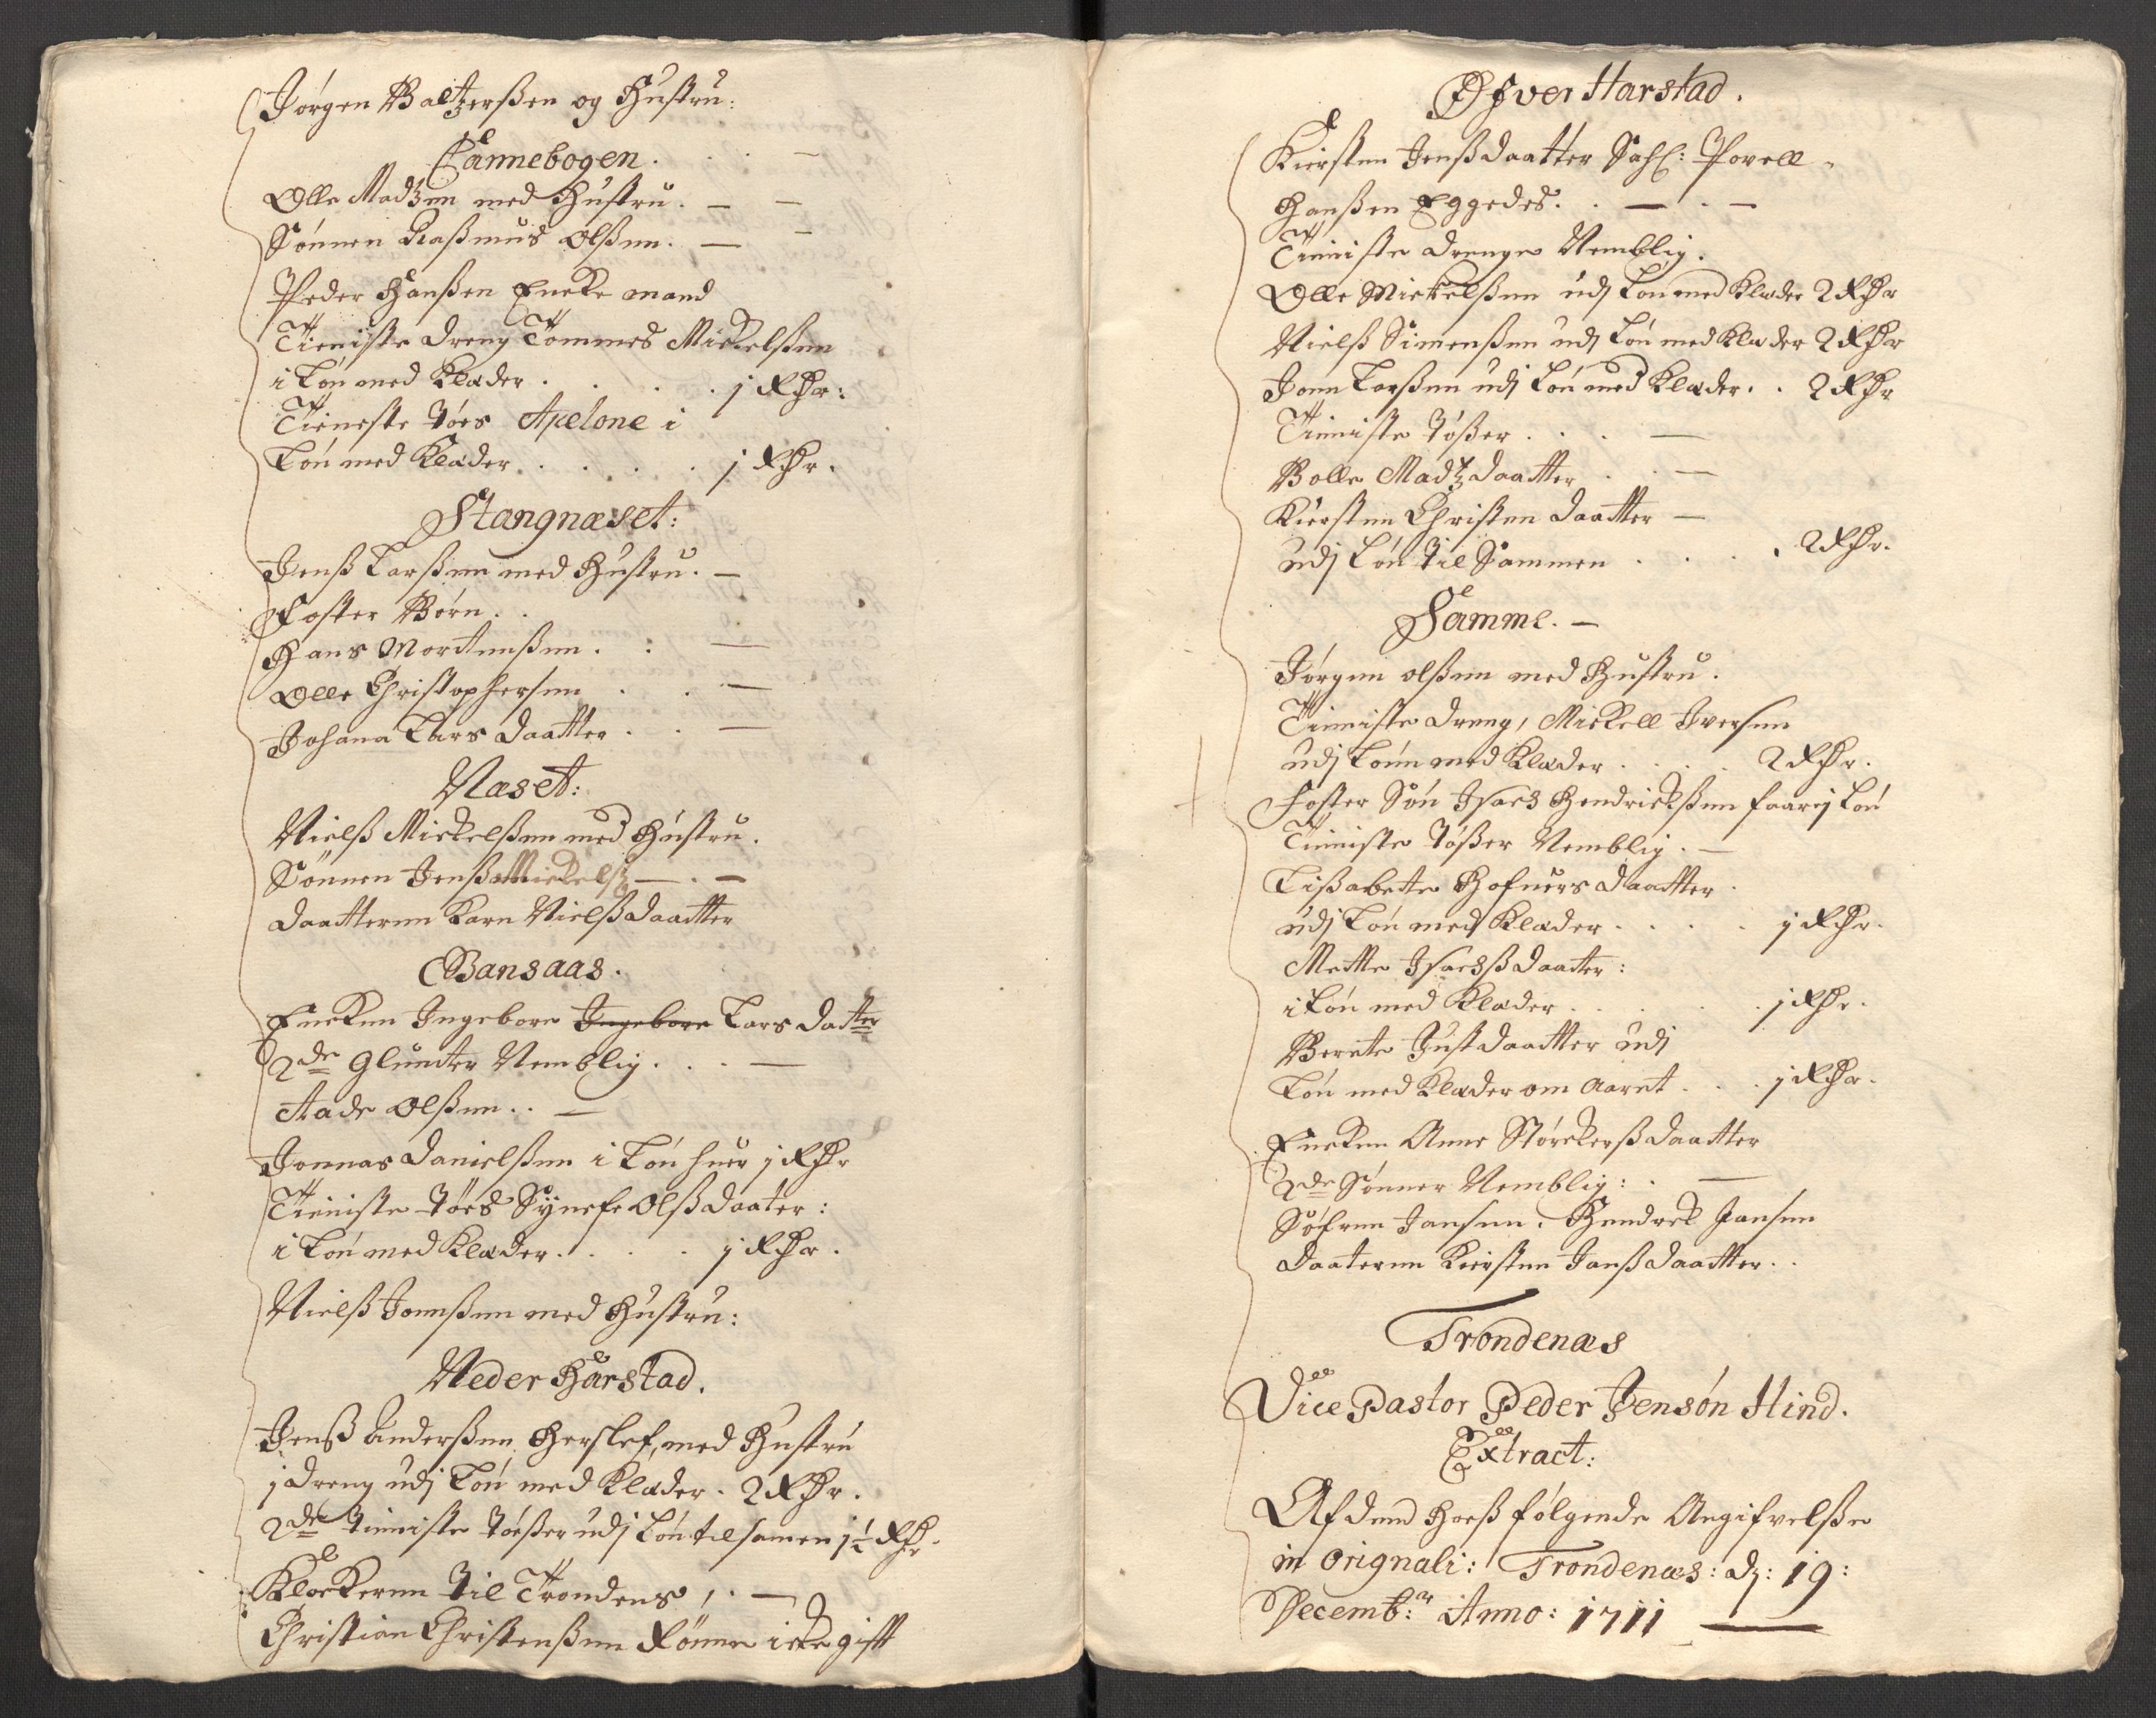 Jørgen Baltzerßen og Hustru:
Cannebogen. . . —
Olle Madtzen med Hustru. — —
Sønnen Raßmus Olßen. — —
Peder Hanßen Encke mand
Tieniste dreng Tommes Mickelßen
i Løn med Klæder . . . . 1 Rdr:
Tieneste Tøes Apelone i
Løn med Klæder . . . . 1 Rdr.
Stangnæset:
Jenß Larßen med Hustru. —
Foster Børn. .
Hans Mortenßen. : —
Olle Christophersen . . —
Johana Lars daatter . . —
Næset:
Nielß Mickelßen med Hustru.
Sønnen Jenß Mickelß — . —
daatteren Karn Nielßdaatter
Gansaas.
Encken Ingebore Ingebore Lars datter
2de Glunter Nemblig. . . —
Aade Olßen. . —
Jonnas Danielßen i Løn huer 1 Rdr
Tieniste Tøes Synefe Olßdaater:
i Løn med Klæder. . . . 1 Rdr.
Nielß Jonnßen med Hustru:
Neder Harstad.
Jenß Anderßen Herslef, med Hustru
1 dreng udj Løn med Klæder. 2 Rdr.
2de Tieniste Tøeßer udj Løn tilsamen 1½ Rdr.
Klockeren til Trondenes, . —
Christian Christenßen Rønne icke gift
Øfver Harstad.
Kiersten Jenßdaatter Sahl: Povell
Hanßen Eggedes. . — . —
Tieniste drenge Nemblig.
Olle Mickelßen udj Løn med Klæder 2 Rdr
Nielß Simenßen udj Løn med Klæder 2 Rdr
Jonn Larßen udj Løn med Klæder. . 2 Rdr
Tieniste Tøßer . . . —
Bolle Madtzdaatter . . —
Kiersten Christen daatter —
udj Løn til Sammen . . . . 2 Rdr.
Samme. —
Jørgen Olßen med Hustru.
Tieniste dreng, Mickell Iversen
udj Lønn med Klæder . . . . 2 Rdr.
Foster Søn Isach Hendrickßen faar ej Løn
Tieniste Tøßer Nemblig. —
Lißabette Hofuers daatter.
udj Løn med Klæder . . . . 1 Rdr.
Mette Isachß daatter:
i Løn med Klæder . . . . 1 Rdr.
Berete Just daatter udj
Løn med Klæder om Aaret . . . 1 Rdr.
Encken Anne Størckerß daatter
2de Sønner Nemblig: . —
Søfren Jansen. Hendrek Jansen
daateren Kiersten Janß daatter. .
Trondenæs
Vice Pastor Peder Jensøn Hind.
Extract:
Af dend hoeß følgende Angifvelße
in Orignali: Trondenæs: d: 19:
Decemb:r Anno: 1711 —